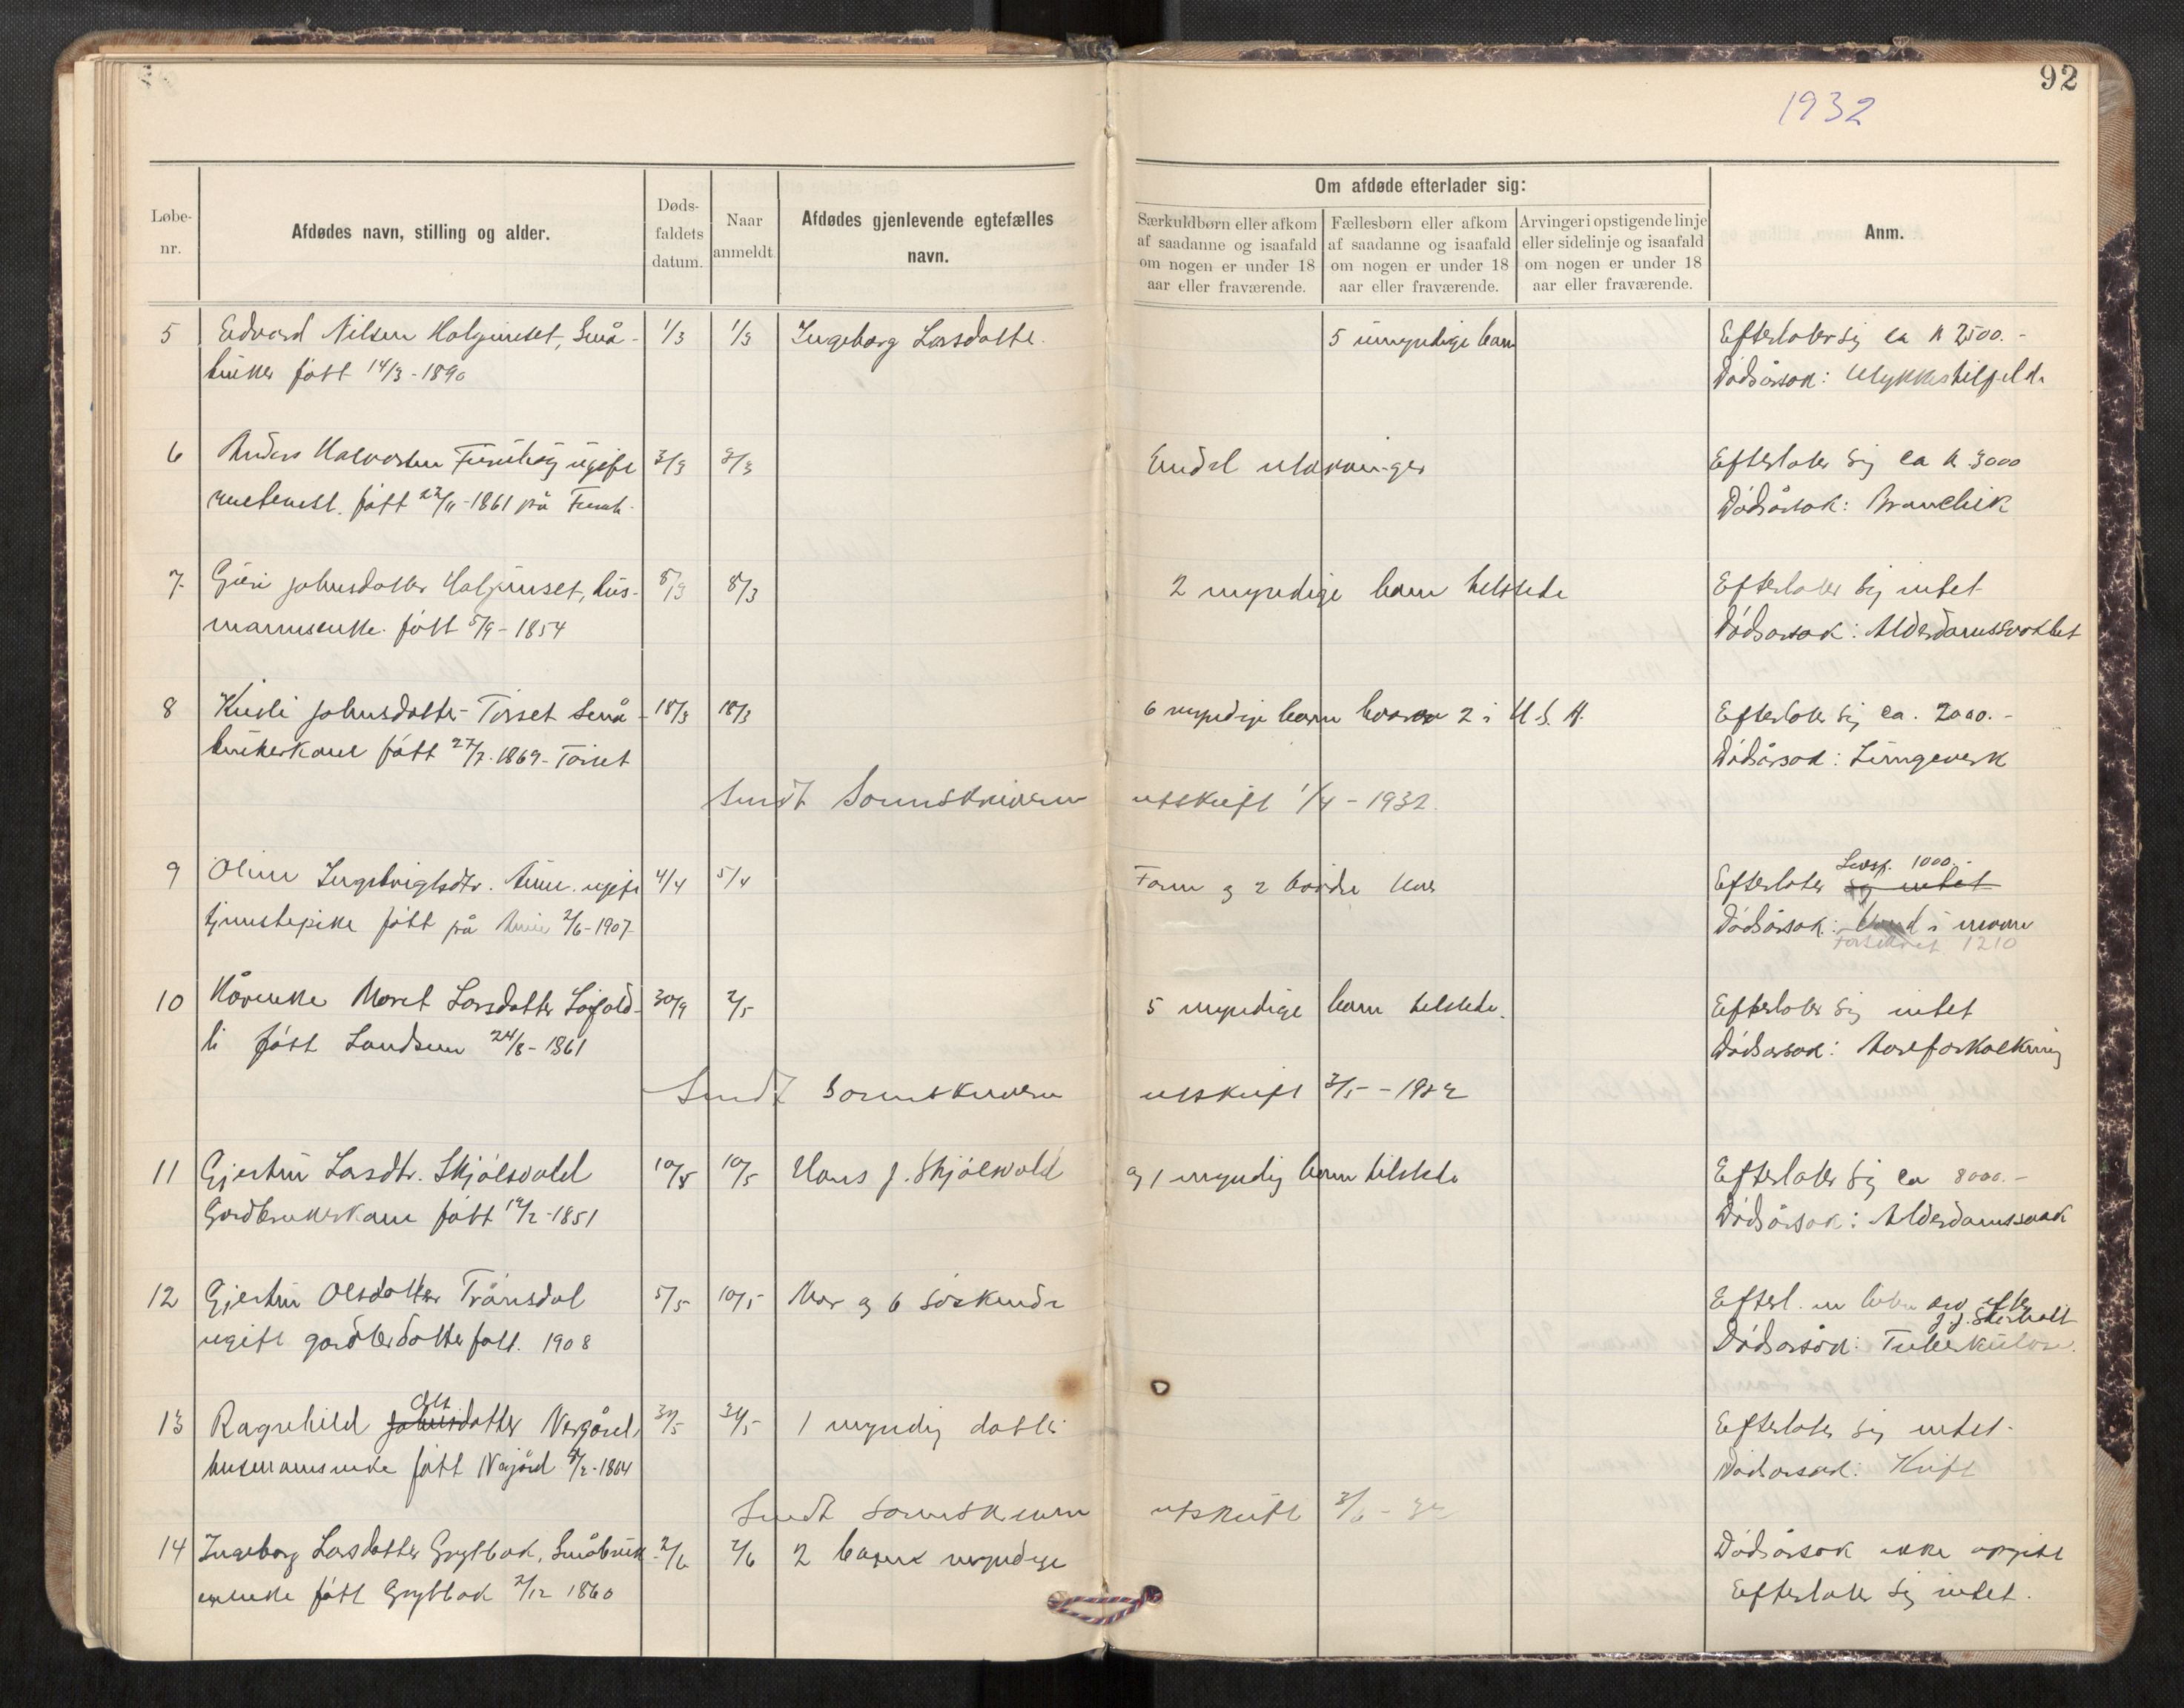 92
1932
Løbe-nr.
Afdødes navn, stilling og alder.
Døds-faldets datum.
Naar anmeldt.
Afdødes gjenlevende egtefælles navn.
Om afdøde efterlader sig:
Særkuldbørn eller afkom af saadanne og isaafald om nogen er under 18 aar eller fraværende.
Fællesbørn eller afkom af saadanne og isaafald om nogen er under 18 aar eller fraværende.
Arvinger i opstigende linje eller sidelinje og isaafald om nogen er under 18 aar eller fraværende.
Anm.
5 Edvard Nilsen Halgunset, Små- 1/3 1/3 Ingeborg Larsdatte. 5 umyndige barn Efterlater sig ca k 2500.-
bruker født 14/3 - 1890 Dødsårsak: Ulykkestilfelde
6 Anders Halvorsen ugift 3/3 3/3 Endel utarvinger Efterlater sig ca k. 3000
født 22/11 - 1861 på Dødsårsak: Bronchit
7 Guri Johnsdatter Halgunset, hus- 8/3 8/3 2 myndige barn tilstede Efterlater sig intet
mannsenke. født 5/9 - 1854 Dødsorsak: Alderdomssvakhet
8 Kirsti Johnsdatter Torset Små- 18/3 18/3 6 myndige barn hvorav 2 i U.S.A. Efterlater sig ca. 2000.-
brukerkone født 27/7. 1869 - Torset Dødsårsak: Lungeverk
Sendt Sorenskriveren utskrift 1/4 - 1932.
9 Oline Ingebrigtsdtr. Aune. ugift 4/4 5/4 Form og 2 brødre Efterlater sig intet 1000.-
tjenestepike født på Aune 2/6 - 1907 Dødsårsak: i maven
1210
10 Kårenke Maret Larsdatter 30/4 2/5 5 myndige barn tilstede. Efterlater sig intet
li født 24/8 - 1861 Dødsorsak: Aareforkalkning
Sendt Sorenskriveren utskrift 3/5 - 1932
11 Gjertru Larsdtr. Skjølsvold 10/5 10/5 Hans J. Skjølsvold og 1 myndig barn tilstede Efterlater sig ca 8000.-
Gardbrukerkone født 19/2 - 1851 Dødsårsak: Alderdomssvak
12 Gjertru Olsdatter Trånsdal 5/5 10/5 Mor og 6 søskende Efterl. en liten arv efter
ugift gardbr.datter født. 1908 Dødsorsak: Tuberkulose.
13 Ragnhild Johnsdatter Ols 31/5 31/5 1 myndig datter Efterlater sig intet.
husmannsenke født 1864 Dødsorsak: Kreft
Sendt Sorenskriveren utskrift 3/6 - 32
14 Ingeborg Larsdatter Grytbak, Småbruk- 2/6 2/6 2 barn myndige Dødsårsak ikke opgitt
erenke født Grytbak 2/12 1860 Efterlater sig intet.